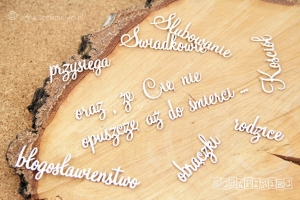 Ślubowanie
Świadkowie
Kościół
przysięga
oraz, że Cię nie
opuszczę aż do śmierci...
rodzice
obrączki
błogosławieństwo